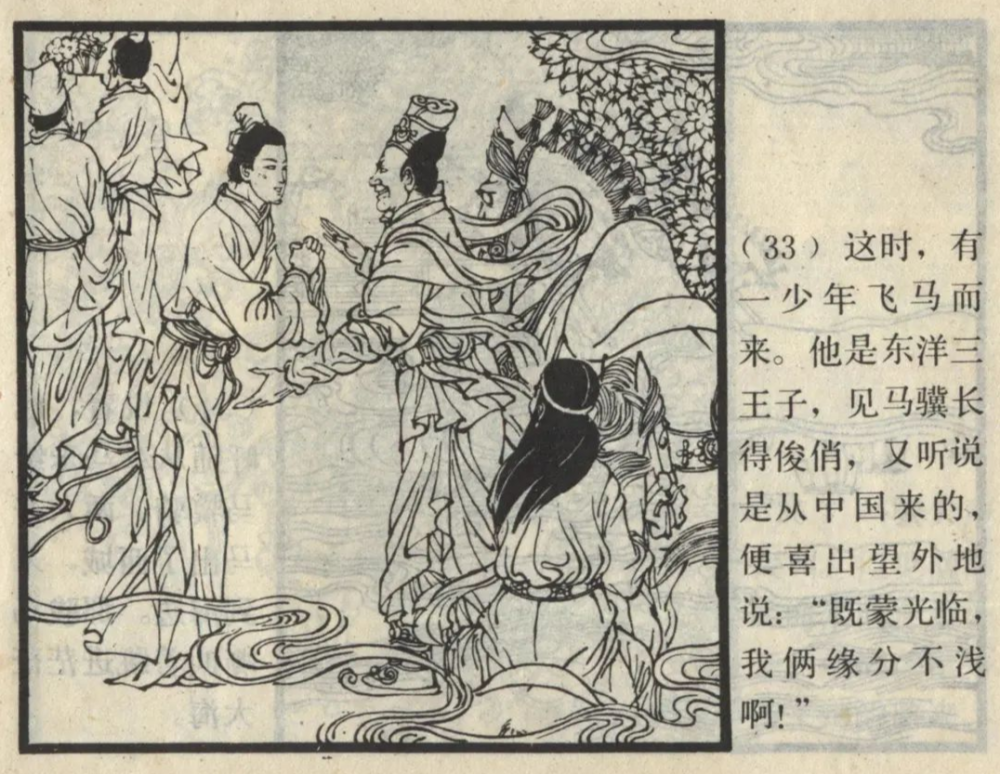 （33）这时，有
一少年飞马而
来。他是东洋三
王子，见马骥长
得俊俏，又听说
是从中国来的，
便喜出望外地
说：“既蒙光临，
我俩缘分不浅
啊！”